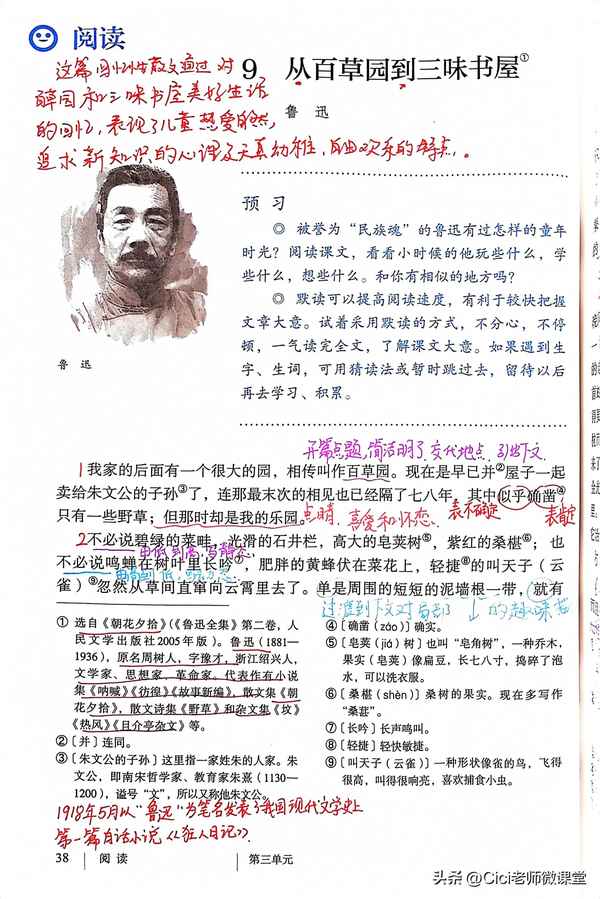 阅读
9 从百草园到三味书屋①
鲁 迅
这篇回忆性散文通过对
和三味书屋美好生活
的回忆,表现了儿童热爱自然,
追求新知识的心理及天真幼稚、自由欢乐的特点。
鲁 迅
预 习
◎ 被誉为“民族魂”的鲁迅有过怎样的童年
时光?阅读课文,看看小时候的他玩些什么,学
些什么,想些什么。和你有相似的地方吗?
◎ 默读可以提高阅读速度,有利于较快把握
文章大意。试着采用默读的方式,不分心,不停
顿,一气读完全文,了解课文大意。如果遇到生
字、生词,可用猜读法或暂时跳过去,留待以后
再去学习、积累。
开篇点题,简洁明了,交代地点,引出下文
1 我家的后面有一个很大的园,相传叫作百草园。现在是早已并②屋子一起
卖给朱文公的子孙③了,连那最末次的相见也已经隔了七八年,其中似乎确凿④
只有一些野草;但那时却是我的乐园。点睛,喜爱和怀恋 表不确定 表肯定
2 不必说碧绿的菜畦,光滑的石井栏,高大的皂荚树⑤,紫红的桑椹⑥;也
由低到高
不必说鸣蝉在树叶里长吟⑦,肥胖的黄蜂伏在菜花上,轻捷⑧的叫天子(云
由高到低
雀)⑨忽然从草间直窜向云霄里去了。单是周围的短短的泥墙根一带,就有
过渡到下文对 的趣味描
① 选自《朝花夕拾》(《鲁迅全集》第二卷,人
民文学出版社2005年版)。鲁迅(1881—
1936),原名周树人,字豫才,浙江绍兴人,
文学家、思想家、革命家。代表作有小说
集《呐喊》《彷徨》《故事新编》,散文集《朝
花夕拾》,散文诗集《野草》和杂文集《坟》
《热风》《且介亭杂文》等。
②〔并〕连同。
③〔朱文公的子孙〕这里指一家姓朱的人家。朱
文公,即南宋哲学家、教育家朱熹(1130—
1200),谥号“文”,所以又称他朱文公。
④〔确凿(záo)〕确实。
⑤〔皂荚(jiá)树〕也叫“皂角树”,一种乔木,
果实(皂荚)像扁豆,长七八寸,捣碎了泡
水,可以洗衣服。
⑥〔桑椹(shèn)〕桑树的果实。现在多写作
“桑葚”。
⑦〔长吟〕长声鸣叫。
⑧〔轻捷〕轻快敏捷。
⑨〔叫天子(云雀)〕一种形状像雀的鸟,飞得
很高,叫得很响亮,喜欢捕食小虫。
1918年5月以“鲁迅”为笔名发表了我国现代文学史上
第一篇白话小说《狂人日记》。
38 阅 读 第三单元
头条 @Cici老师微课堂